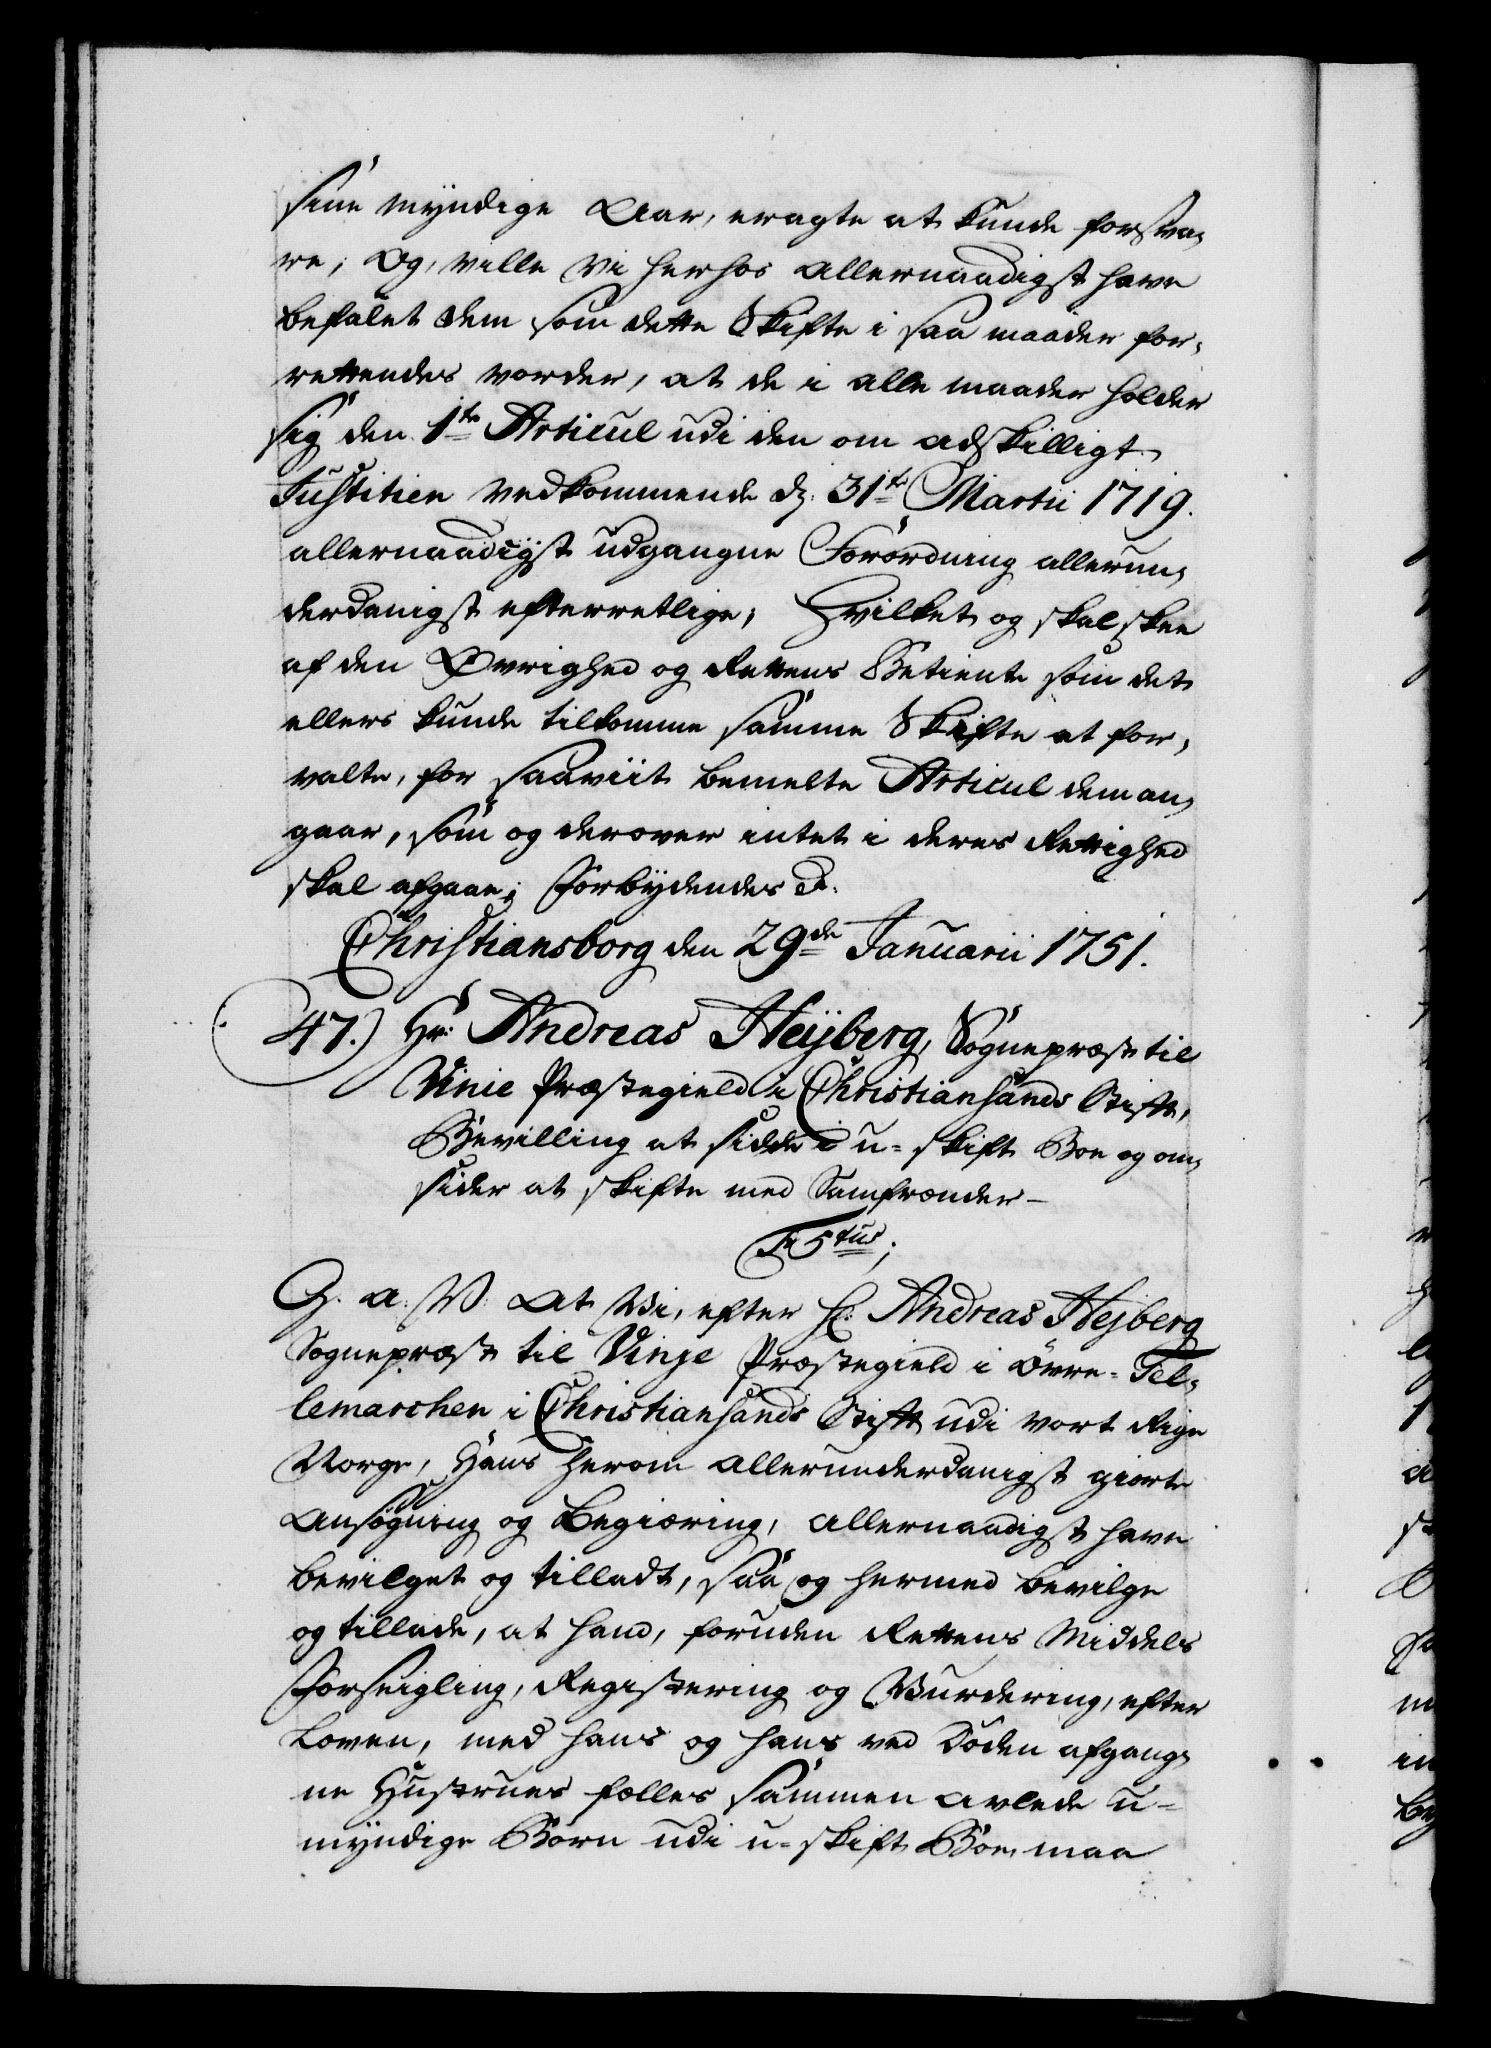 sine myndige Aar, eragte at kunde forsva-
re; Og, ville Vi herhos allernaadigst have
befalet dem som dette Skifte i saa maader for-
rettendes vorder, at de i alle maader holder
sig den 1te Articul udi den om adskilligt
Justitien vedkommende dj: 31te Martii 1719.
allernaadigst udgangne Forordning allerun-
derdanigst efterretlige; Hvilket og skal skee
af den Øvrighed og Rettens Betiente som det
ellers kunde tilkomme samme Skifte at for-
valte, for saaviit bemelte Articul dem an-
gaar, som og derover intet i deres Rettighed
skal afgaae; Forbydendes &.
Christiansborg den 29de Januarii 1751.
47.) Hr: Andreas Heÿberg, Sognepræst til
Vinie Præstegield i Christiansands Stift,
Bevilling at sidde i u-skift Boe og om-
sider at skifte med Samfrænder -
F 5tus;
G. a. V. At Vi, efter Hr: Andreas Hejberg
Sognepræst til Vinje Præstegield i Øvre-Tel-
lemarchen i Christiansands Stift udi vort Rige
Norge, Hans herom allerunderdanigst giorte
Ansøgning og Begiæring, allernaadigst have
bevilget og tilladt, saa og hermed bevilge
og tillade, at hand, foruden Rettens Middels
Forseigling, Registering og Vurdering, efter
Loven, med hans og hans ved Døden afgang-
ne Hustrues fælles sammen avlede u-
myndige Børn udi u-skift Boe, maa